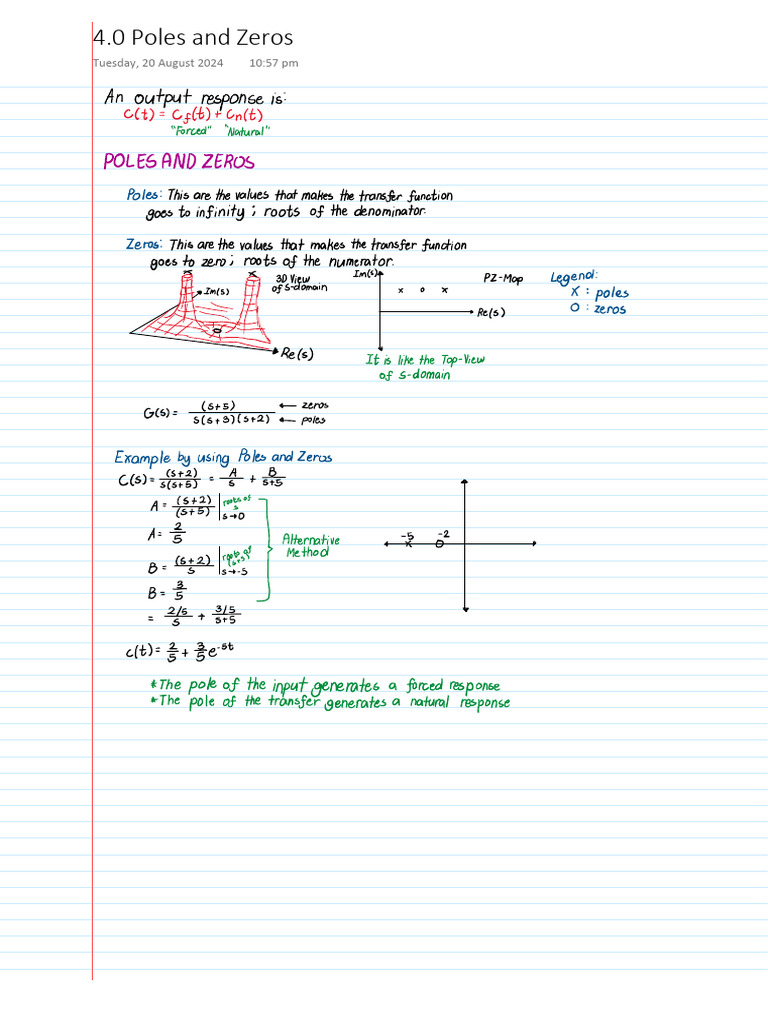 4.0 Poles and Zeros
Tuesday, 20 August 2024 10:57 pm
An output response is:
C(t) = Cf(t) + Cn(t)
"Forced" "Natural"
POLES AND ZEROS
Poles: This are the values that makes the transfer function
goes to infinity ; roots of the denominator.
Zeros: This are the values that makes the transfer function
goes to zero ; roots of the numerator.
x x
Im(s)
3D View
of s-domain
Re(s)
Im(s)
x o x
PZ-Map
Re(s)
It is like the Top-View
of s-domain
Legend:
X : poles
O : zeros
G(s) = (s+5) / s(s+3)(s+2) ← zeros ← poles
Example by using Poles and Zeros
C(s) = (s+2) / s(s+5) = A/s + B/s+5
A = (s+2) / (s+5) | roots of s s→0
A = 2/5
B = (s+2) / s | roots of (s+5) s→-5
B = 3/5
= 2/5 / s + 3/5 / s+5
Alternative
Method
-5 -2
x o
c(t) = 2/5 + 3/5 e^-5t
*The pole of the input generates a forced response
*The pole of the transfer generates a natural response